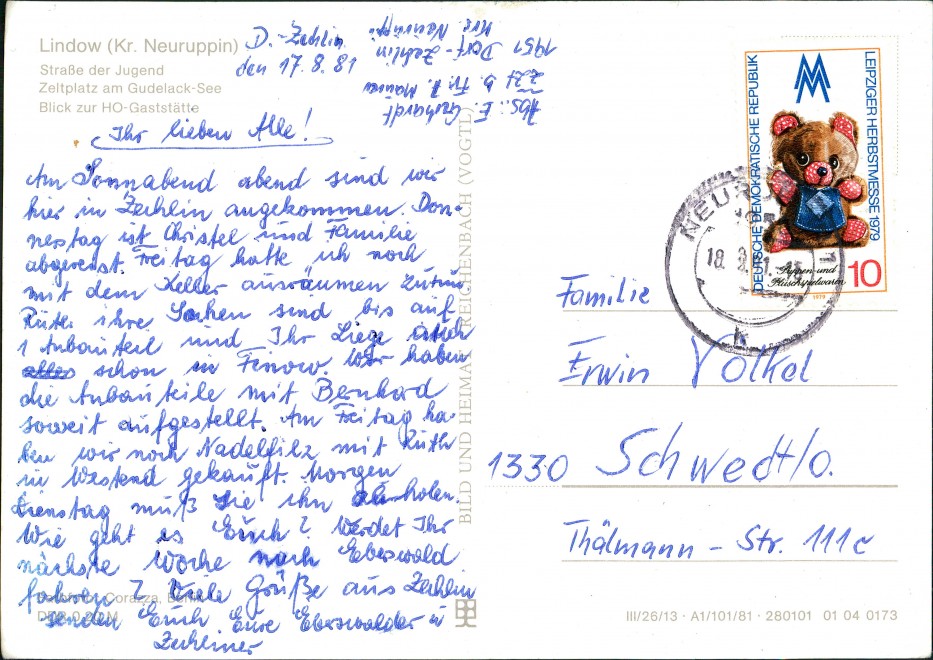 Lindow (Kr. Neuruppin)
Straße der Jugend
Zeltplatz am Gudelack-See
Blick zur HO-Gaststätte
D.-Zechlin
den 17.8.81
Abs.: E. Gerhardt
221 b. Fr.
1951 Dorf-Zechlin
Krs. Neuruppin
Ihr lieben Alle!
Am Sonnabend abend sind wir
hier in Zechlin angekommen. Don-
nestag ist Christel und Familie
abgereist. Freitag hatte ich noch
mit dem Keller ausräumen zutun
Ruth ihre Sachen sind bis auf
1 Anbauteil und Ihr Liege
schon in Finow. Wir haben
die Anbauteile mit Bernhard
soweit aufgestellt. Am Freitag ha-
ben wir noch Nadelfilz mit Ruth
in Westend gekauft. Morgen
Dienstag muß Sie ihn holen.
Wie geht es Euch? Werdet Ihr
nächste Woche nach Eberswald
fahren? Viele Grüße aus Zechlin
senden Euch Eure Eberswalder u
Zechliner
BILD UND HEIMAT REICHENBACH (VOGTL)
DEUTSCHE DEMOKRATISCHE REPUBLIK
LEIPZIGER HERBSTMESSE 1979
Puppen und
Plüschspielwaren
10
1979
Familie
Erwin Völkel
1330 Schwedt/O.
Thälmann-Str. 111c
III/26/13 · A1/101/81 · 280101 01 04 0173